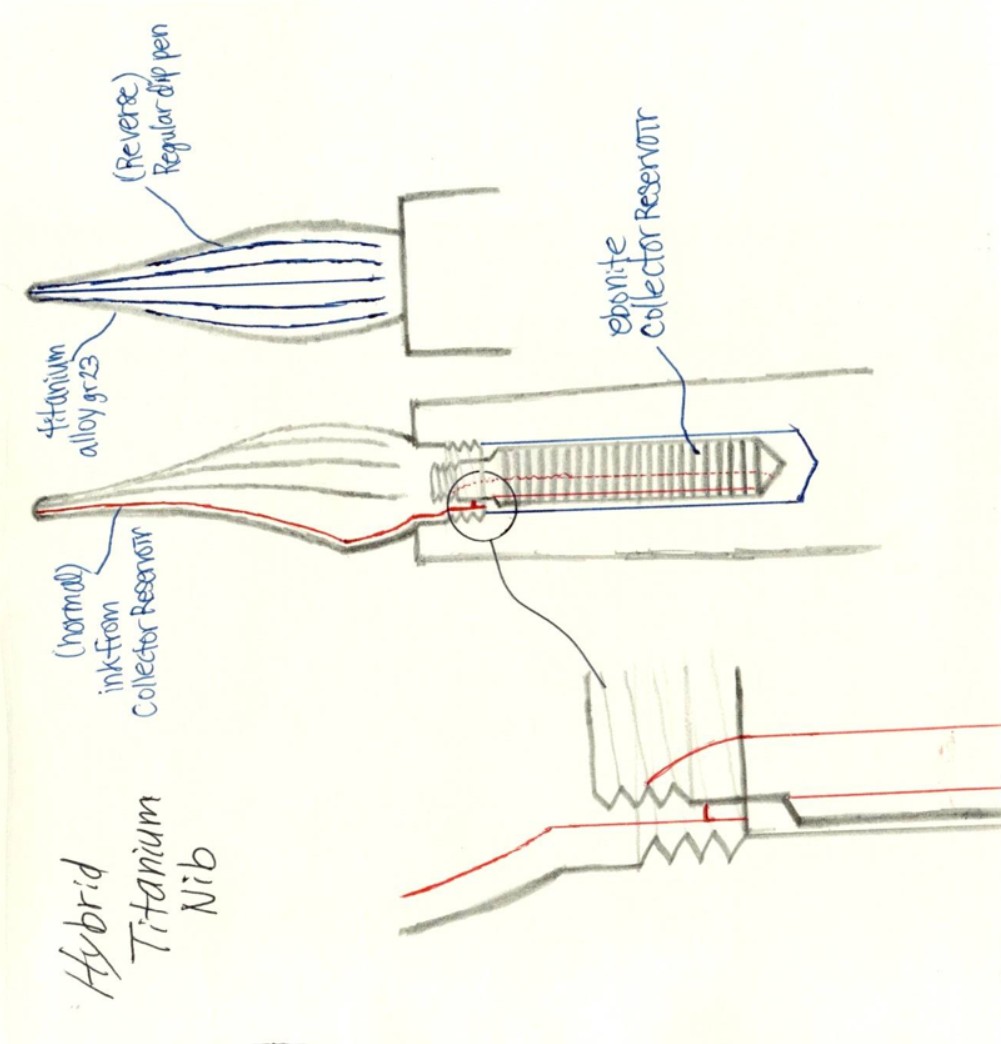 Hybrid
Titanium
Nib
(normal)
ink from
Collector Reservoir
titanium
alloy gr23
(Reverse)
Regular dip pen
ebonite
Collector Reservoir